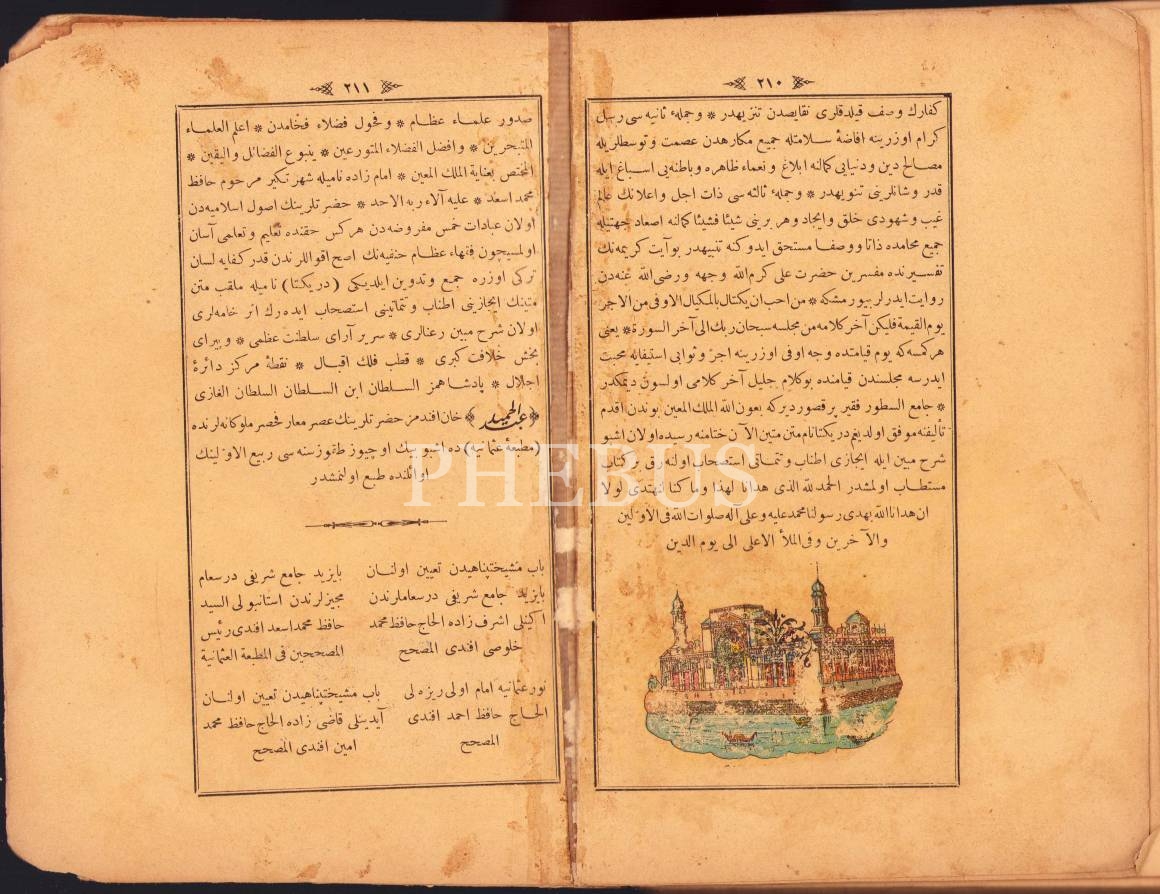 ٢١٠
كفارك وصف قيلدقلرى نقايصدن تنزيهدر * وجملهٔ ثانيه سى رسل
كرام اوزرينه افاضهٔ سلامتله جميع مكارهدن عصمت وتوسطلريله
مصالح دين ودنيايى كمالنه ابلاغ ونعماء ظاهره وباطنه يى اسباغ ايله
قدر وشانلرينى تنويهدر * وجملهٔ ثالثه سى ذات اجل واعلانك عالم
غيب وشهودى خلق وايجاد وهر برينى شيئا فشيئا كمالنه اصعاد جهتيله
جميع محامده ذاتا ووصفا مستحق ايدوكنه تنبيهدر بو آيت كريمه نك
تفسيرنده مفسرين حضرت على كرم الله وجهه ورضى الله عنه دن
روايت ايدرلر بيورمشكه * من احب ان يكتال بالمكيال الاوفى من الاجر
يوم القيمة فليكن آخر كلامه من مجلسه سبحان ربك الى آخر السورة * يعنى
هر كمسه كه يوم قيامتده وجه اوفى اوزرينه اجر وثوابى استيفايه محبت
ايدرسه مجلسندن قيامنده بو كلام جليل آخر كلامى اولسون ديمكدر
* جامع السطور فقير پرقصور ديركه بعون الله الملك المعين بوندن اقدم
تأليفنه موفق اولديغم دريكتا نام متن متين الآن ختامنه رسيده اولان اشبو
شرح مبين ايله ايجازى اطناب وتتماتى استصحاب اولنه رق بر كتاب
مستطاب اولمشدر الحمد لله الذى هدانا لهذا وما كنا لنهتدى لولا
ان هدانا الله بهدى رسولنا محمد عليه وعلى آله صلوات الله فى الاولين
والآخرين وفى الملأ الاعلى الى يوم الدين
٢١١
صدور علماء عظام * وفحول فضلاء فخامدن * اعلم العلماء
المتبحرين * وافضل الفضلاء المتورعين * ينبوع الفضائل واليقين *
المختص بعناية الملك المعين * امام زاده ناميله شهرتكير مرحوم حافظ
محمد اسعد * عليه آلاء ربه الاحد * حضرتلرينك اصول اسلاميه دن
اولان عبادات خمس مفروضه دن هركس حقنده تعليم وتعلمى آسان
اولمسيچون فقهاء عظام حنفيه نك اصح اقواللرندن قدر كفايه لسان
تركى اوزره جمع وتدوين ايلديكى (دريكتا) ناميله ملقب متن
متينك ايجازينى اطناب وتتماتينى استصحاب ايده رك اثر خامه لرى
اولان شرح مبين رعنالرى * سرير آراى سلطنت عظمى * وپيراى
بخش خلافت كبرى * قطب فلك اقبال * نقطهٔ مركز دائرهٔ
اجلال * پادشاهمز السلطان ابن السلطان السلطان الغازى
﴿عبد الحميد﴾ خان افندمز حضرتلرينك عصر معارفحصر ملوكانه لرنده
(مطبعهٔ عثمانيه) ده اشبو بيك اوچيوز طقوز سنه سى ربيع الاولينك
اوائلنده طبع اولنمشدر
باب مشيختپناهيدن تعيين اولنان
بايزيد جامع شريفى درسعاملرندن
اكينلى اشرف زاده الحاج حافظ محمد
خلوصى افندى المصحح
بايزيد جامع شريفى درسعام
مجيزلرندن استانبولى السيد
حافظ محمد اسعد افندى رئيس
المصححين فى المطبعة العثمانية
نور عثمانيه امام اولى ريزه لى
الحاج حافظ احمد افندى
المصحح
باب مشيختپناهيدن تعيين اولنان
آيدينلى قاضى زاده الحاج حافظ محمد
امين افندى المصحح
PHEBUS